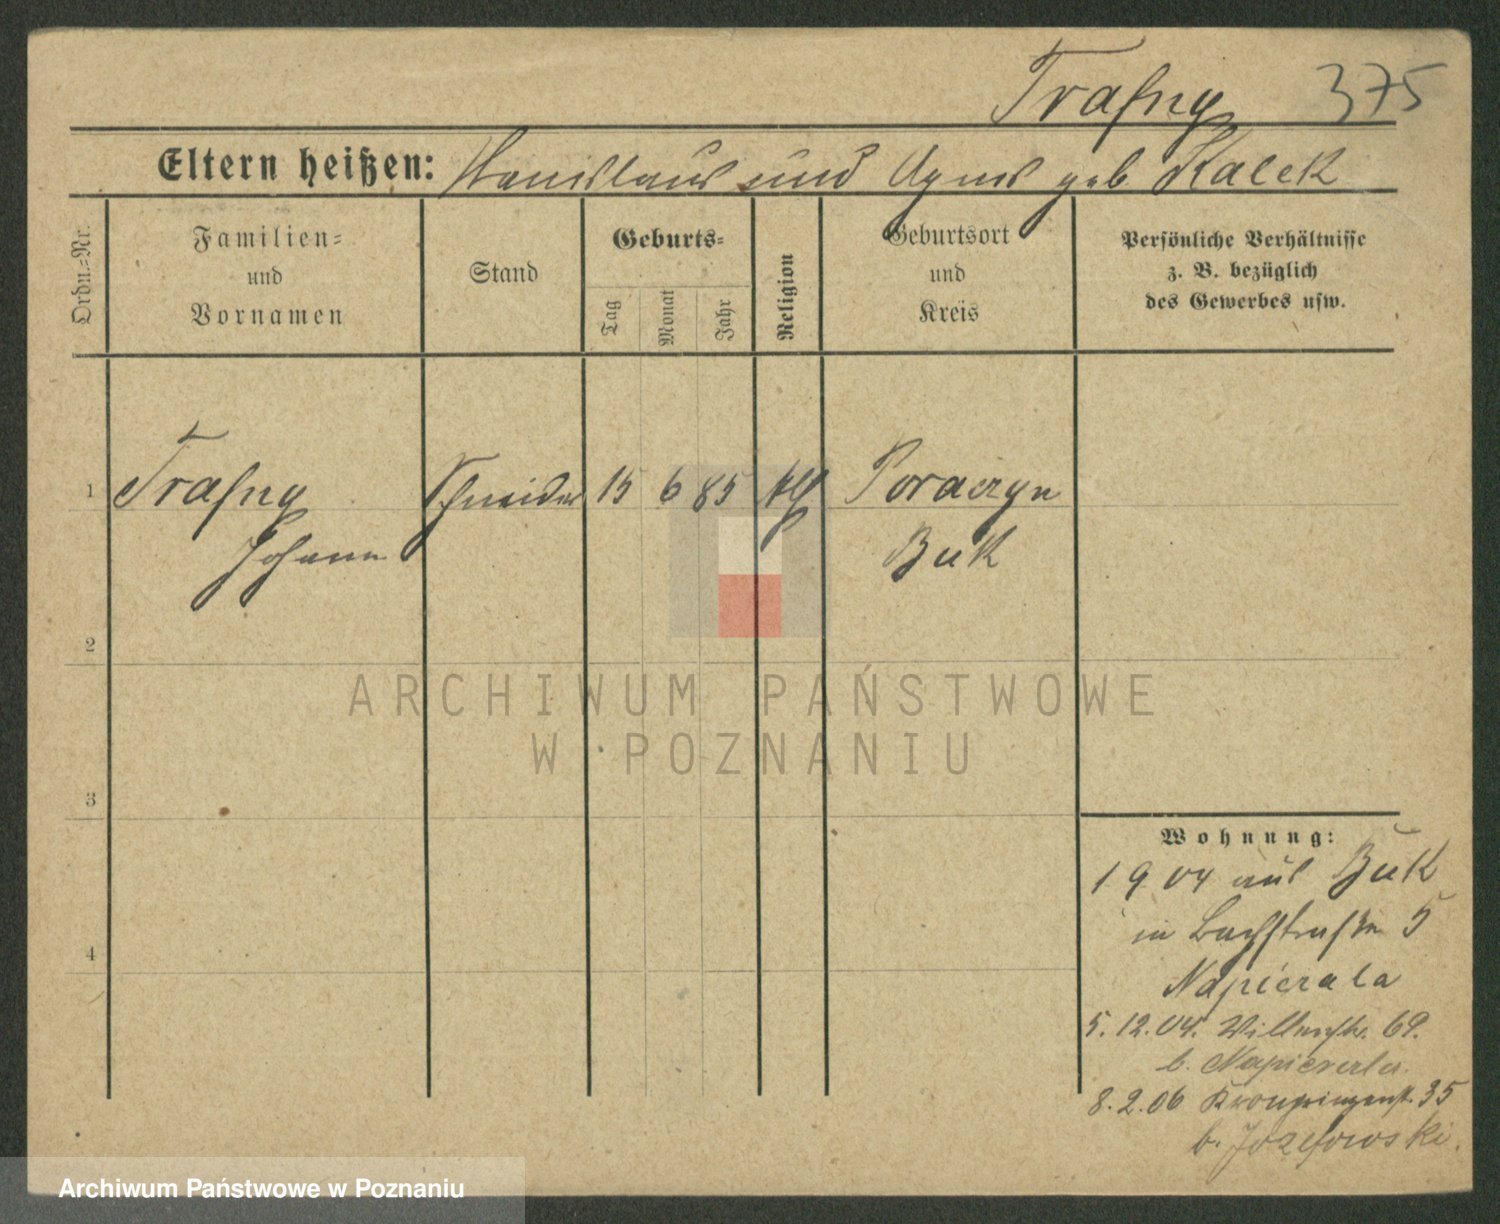 Trafny 375
Eltern heißen: Stanislaus und Agnes geb Kalek
Ordn.=Nr.
Familien=
und
Vornamen
Stand
Geburts=
Tag
Monat
Jahr
Religion
Geburtsort
und
Kreis
Persönliche Verhältnisse
z. B. bezüglich
des Gewerbes usw.
1 Trafny Schneider 15 6 85 kth Poraczyn
Johann Buk
2
ARCHIWUM PAŃSTWOWE
W POZNANIU
3
Wohnung:
1904 aus Buk
in Bachstraße 5
Napierala
4
5. 12. 04. 69.
b. Napierala.
8. 2. 06 Kronprinzenst. 35
b. Jozefowski.
Archiwum Państwowe w Poznaniu